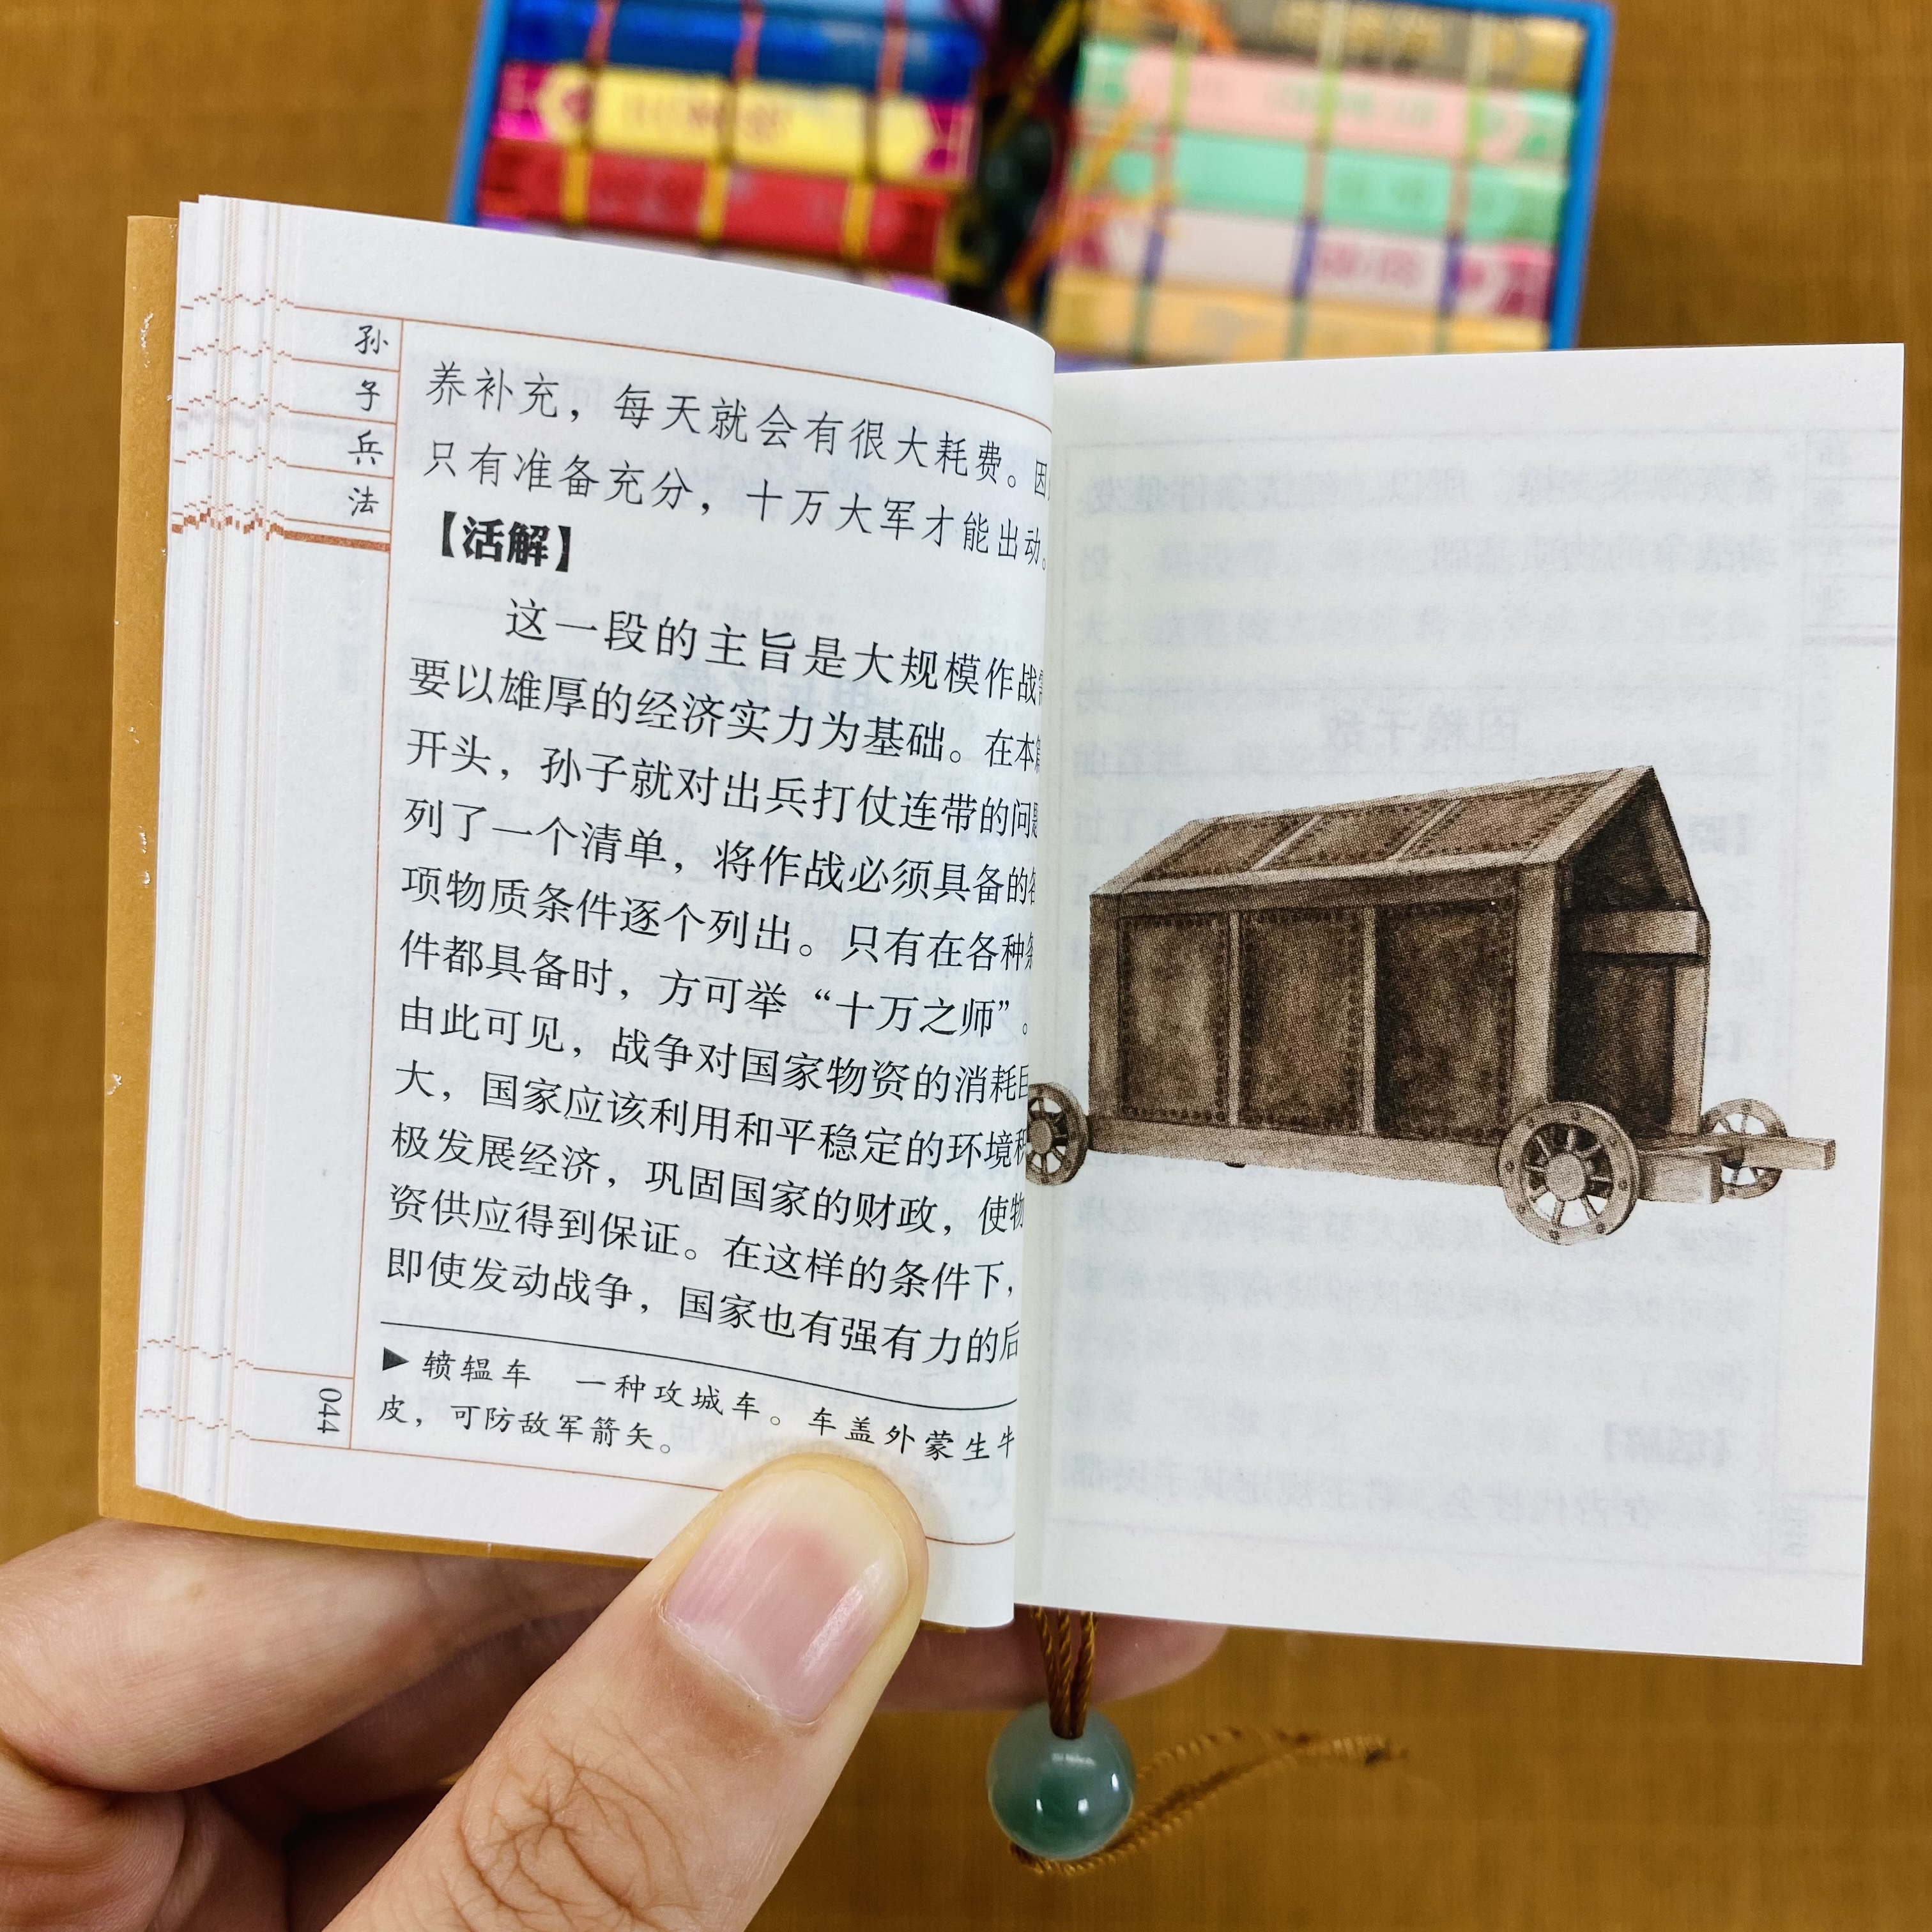 孙子兵法
养补充，每天就会有很大耗费。因
只有准备充分，十万大军才能出动。
【活解】
这一段的主旨是大规模作战需
要以雄厚的经济实力为基础。在本篇
开头，孙子就对出兵打仗连带的问题
列了一个清单，将作战必须具备的各
项物质条件逐个列出。只有在各种条
件都具备时，方可举“十万之师”。
由此可见，战争对国家物资的消耗巨
大，国家应该利用和平稳定的环境积
极发展经济，巩固国家的财政，使物
资供应得到保证。在这样的条件下，
即使发动战争，国家也有强有力的后
▶ 轒辒车 一种攻城车。车盖外蒙生牛
皮，可防敌军箭矢。
044